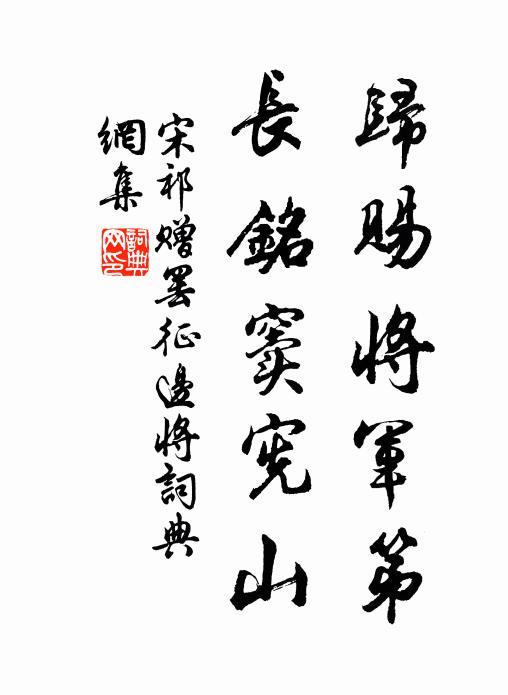 歸賜將軍第
長銘竇宪山
宋祁贈罷征邊將詞典
網集
詞典
网印